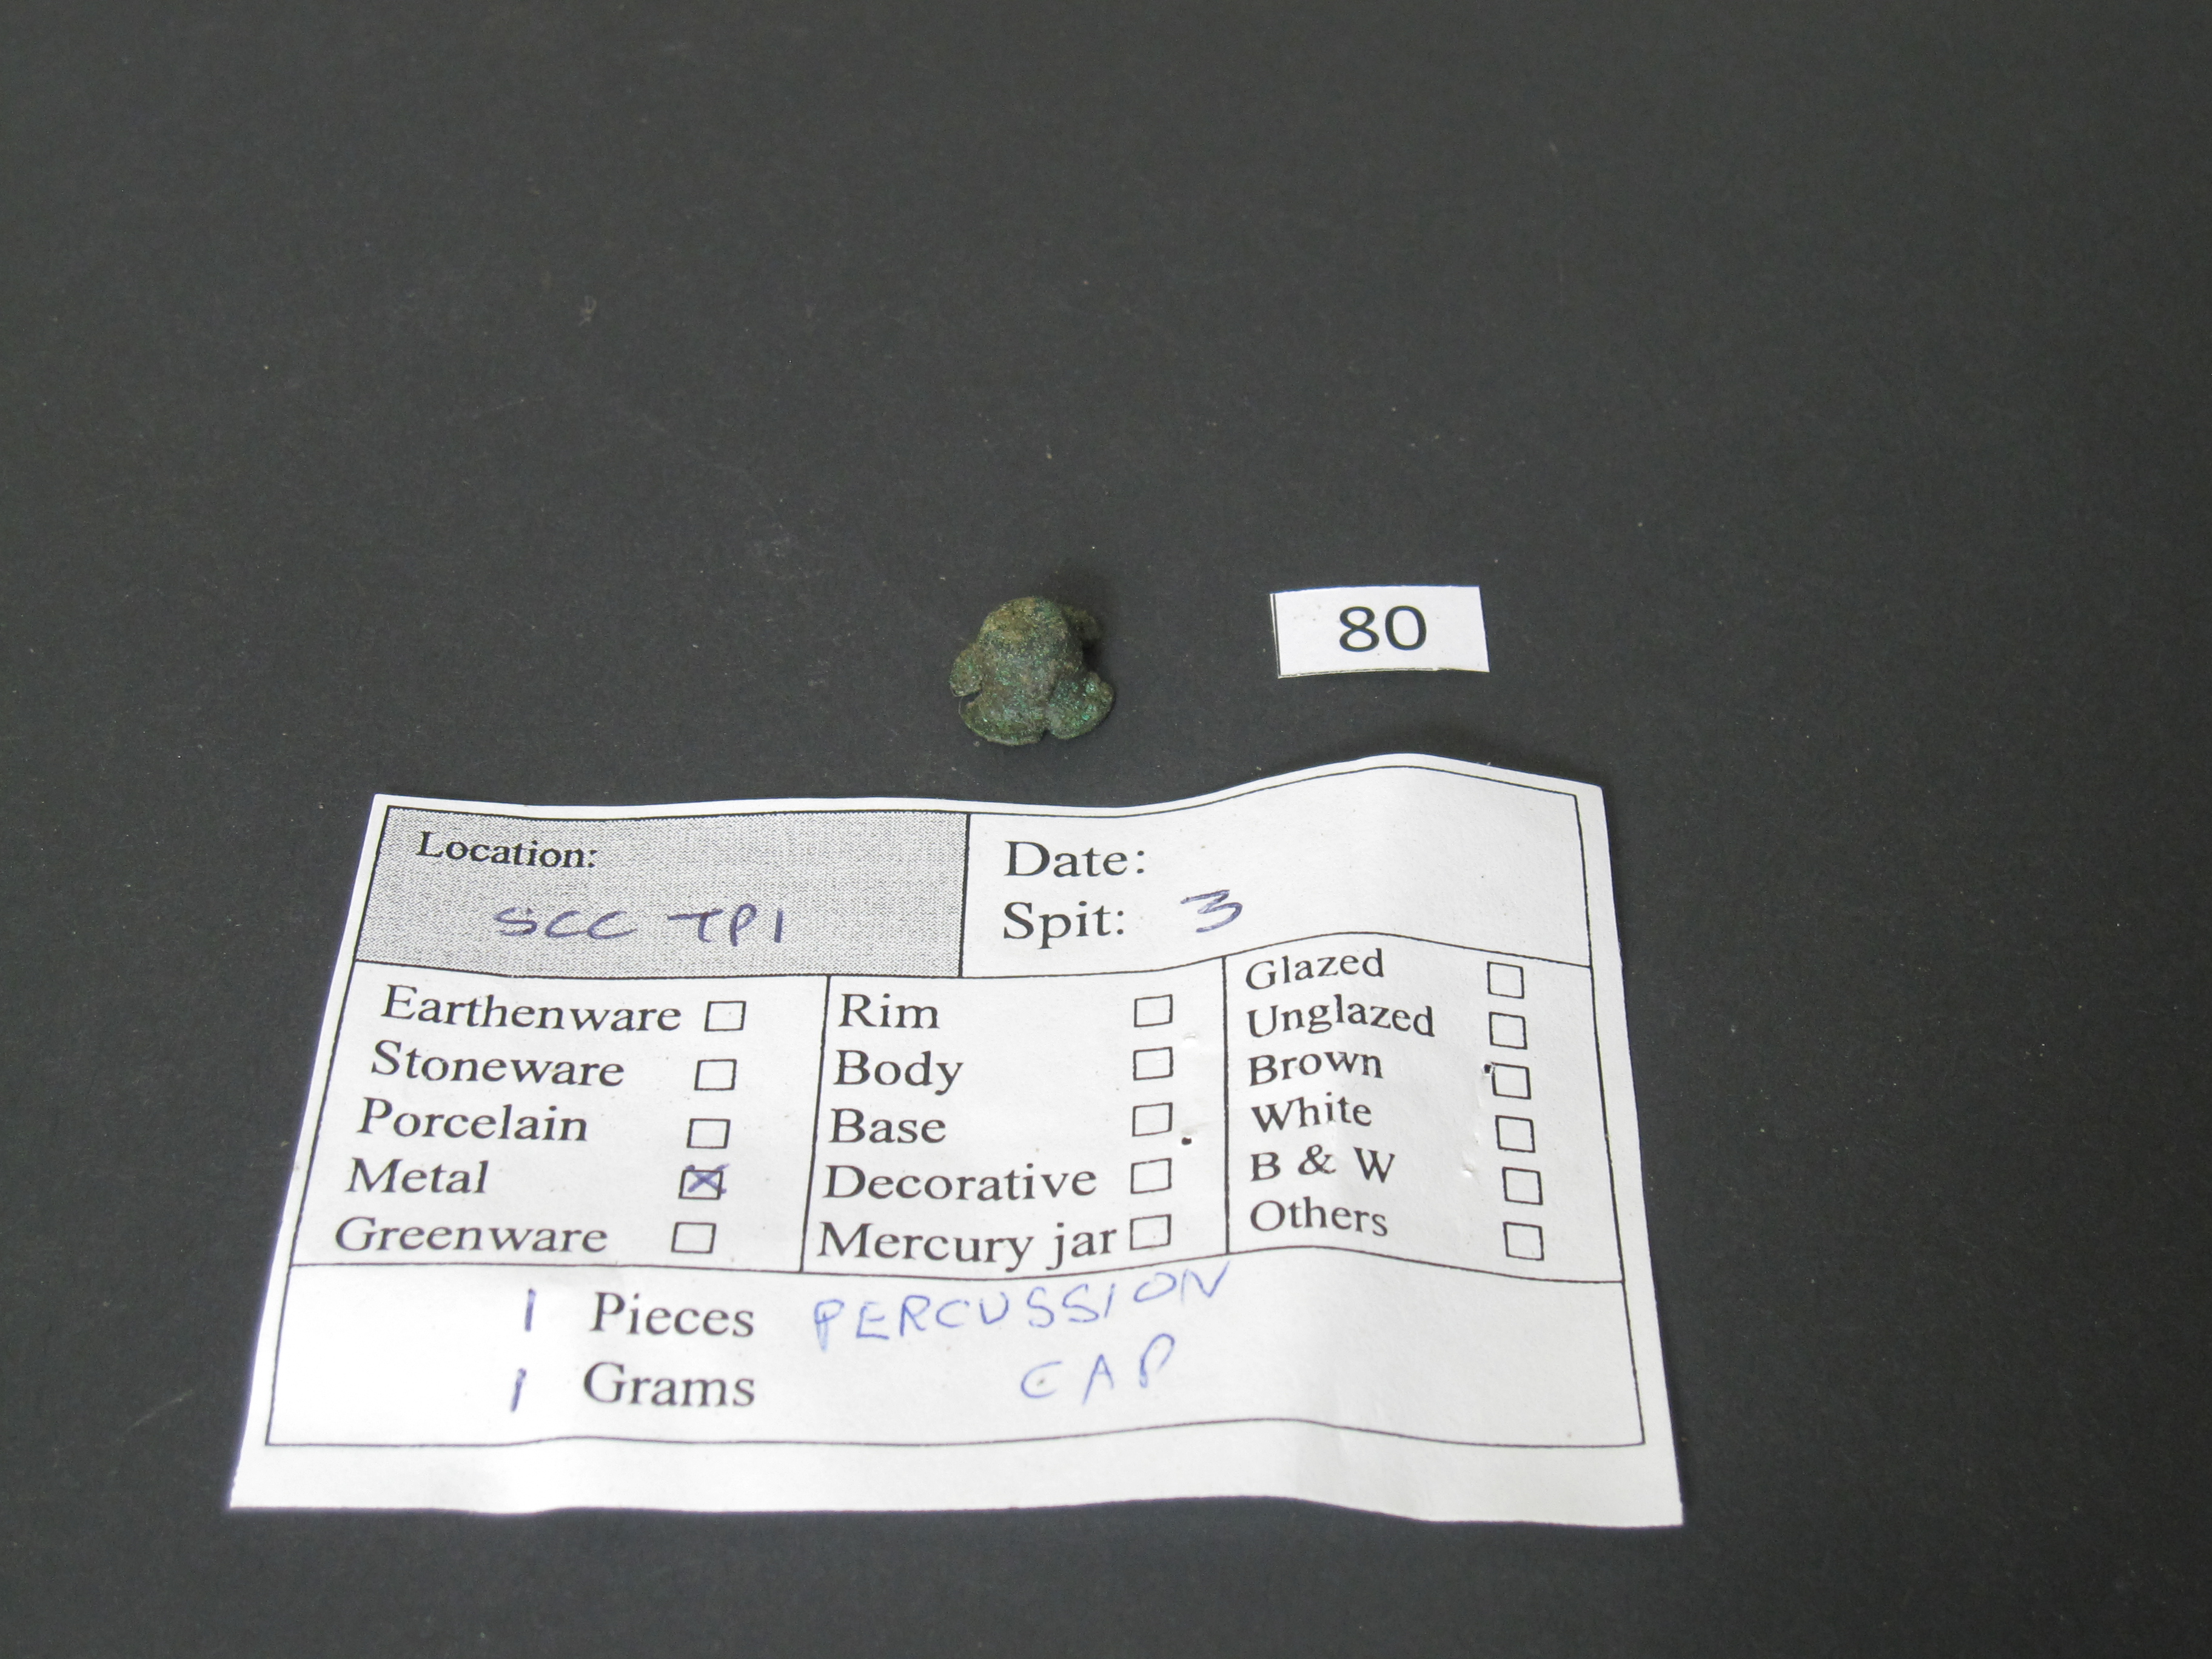 80
Location:
SCC TP1
Date:
Spit: 3
Earthenware
Stoneware
Porcelain
Metal
Greenware
Rim
Body
Base
Decorative
Mercury jar
Glazed
Unglazed
Brown
White
B & W
Others
1 Pieces PERCUSSION
1 Grams CAP